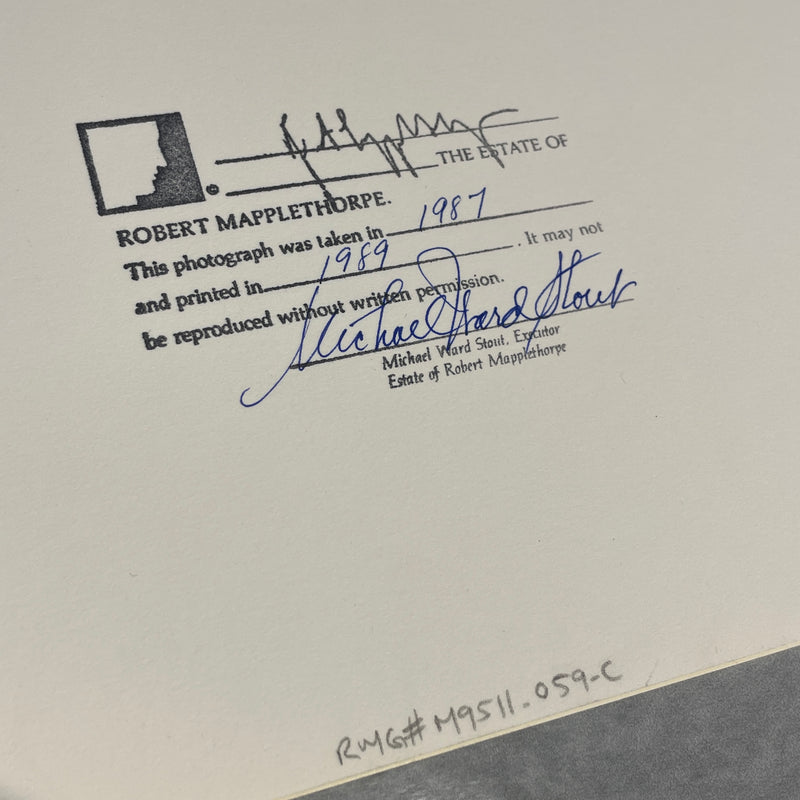 THE ESTATE OF
ROBERT MAPPLETHORPE.
This photograph was taken in 1987
and printed in 1989 . It may not
be reproduced without written permission.
Michael Ward Stout
Michael Ward Stout, Executor
Estate of Robert Mapplethorpe
RMG# M9511.059-C